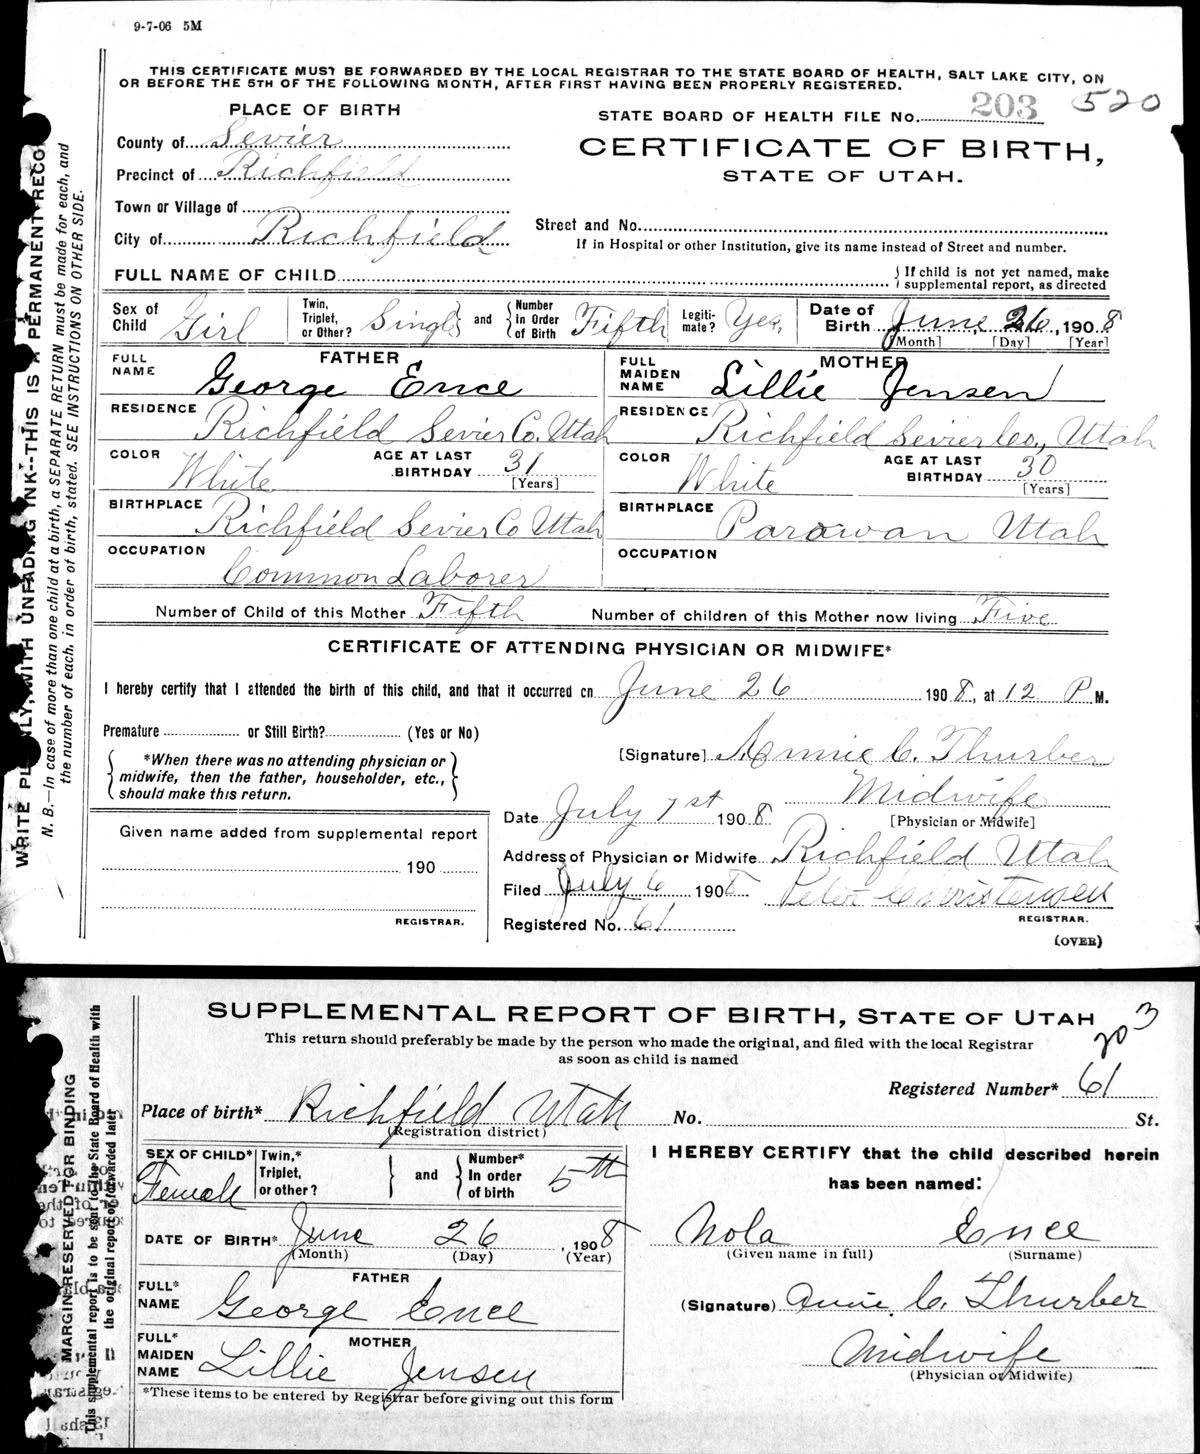 9-7-06 5M
THIS CERTIFICATE MUST BE FORWARDED BY THE LOCAL REGISTRAR TO THE STATE BOARD OF HEALTH, SALT LAKE CITY, ON
OR BEFORE THE 5TH OF THE FOLLOWING MONTH, AFTER FIRST HAVING BEEN PROPERLY REGISTERED.
PLACE OF BIRTH
STATE BOARD OF HEALTH FILE No. 203 520
County of Sevier
CERTIFICATE OF BIRTH,
Precinct of Richfield
STATE OF UTAH.
Town or Village of
Street and No.
City of Richfield
If in Hospital or other Institution, give its name instead of Street and number.
FULL NAME OF CHILD
If child is not yet named, make
supplemental report, as directed
Sex of Child Girl
Twin, Triplet, or Other? Single and Number In Order of Birth Fifth
Legiti-mate? Yes,
Date of Birth June, 26, 1908
[Month] [Day] [Year]
FATHER
FULL NAME George Ence
RESIDENCE Richfield Sevier Co. Utah
COLOR White AGE AT LAST BIRTHDAY 31
[Years]
BIRTHPLACE Richfield Sevier Co Utah
OCCUPATION Common Laborer
MOTHER
FULL MAIDEN NAME Lillie Jensen
RESIDENCE Richfield Sevier Co., Utah
COLOR White AGE AT LAST BIRTHDAY 30
[Years]
BIRTHPLACE Parowan Utah
OCCUPATION
Number of Child of this Mother Fifth Number of children of this Mother now living Five
CERTIFICATE OF ATTENDING PHYSICIAN OR MIDWIFE*
I hereby certify that I attended the birth of this child, and that it occurred on June 26 1908, at 12 P.M.
Premature or Still Birth? (Yes or No)
[Signature] Annie C. Thurber
*When there was no attending physician or
midwife, then the father, householder, etc.,
should make this return.
Midwife
[Physician or Midwife]
Date July 1st 1908
Given name added from supplemental report
190
REGISTRAR.
Address of Physician or Midwife Richfield Utah
Filed July 6 1908 Peter Christensen
REGISTRAR.
Registered No. 61
(OVER)
N. B.—In case of more than one child at a birth, a SEPARATE RETURN must be made for each, and
the number of each, in order of birth, stated. SEE INSTRUCTIONS ON OTHER SIDE.
SUPPLEMENTAL REPORT OF BIRTH, STATE OF UTAH
203
This return should preferably be made by the person who made the original, and filed with the local Registrar
as soon as child is named
Registered Number* 61
Place of birth* Richfield Utah No. St.
(Registration district)
SEX OF CHILD* Female
Twin,* Triplet, or other? and Number* In order of birth 5th
DATE OF BIRTH* June 26, 1908
(Month) (Day) (Year)
FATHER
FULL* NAME George Ence
MOTHER
FULL* MAIDEN NAME Lillie Jensen
*These items to be entered by Registrar before giving out this form
I HEREBY CERTIFY that the child described herein
has been named:
Nola Ence
(Given name in full) (Surname)
(Signature) Annie C. Thurber
Midwife
(Physician or Midwife)
MARGIN RESERVED FOR BINDING
This supplemental report is to be sent to the State Board of Health with
the original report or forwarded later